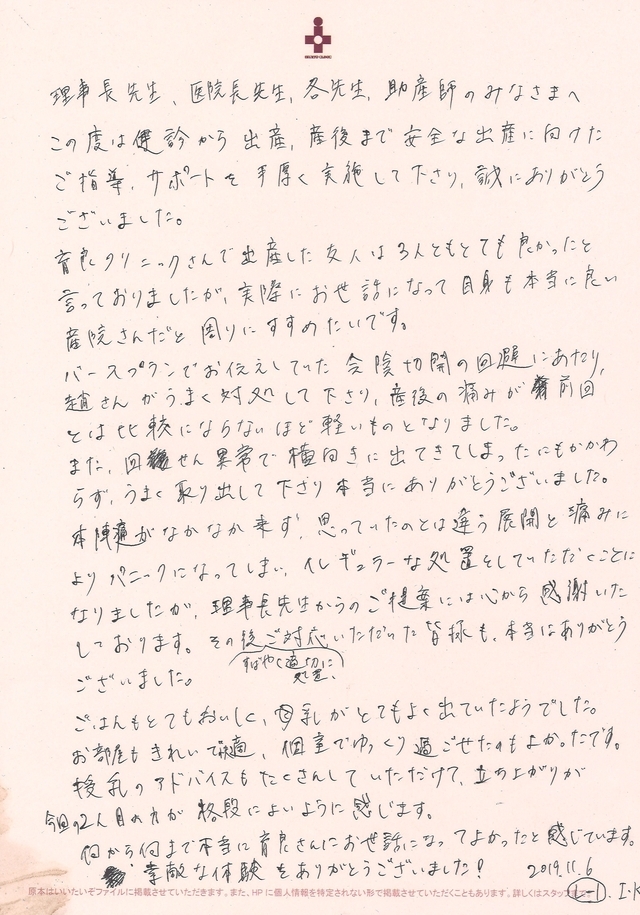 IKURYO CLINIC
理事長先生、医院長先生、各先生、助産師のみなさまへ
この度は健診から出産、産後まで安全な出産に向けた
ご指導、サポートを手厚く実施して下さり、誠にありがとう
ございました。
育良クリニックさんで出産した友人は3人ともとても良かったと
言っておりましたが、実際にお世話になって自身も本当に良い
産院さんだと周りにすすめたいです。
バースプランでお伝えしていた会陰切開の回避にあたり、
趙さんがうまく対処して下さり、産後の痛みが前回
とは比較にならないほど軽いものとなりました。
また、回せん異常で横向きに出てきてしまったにもかかわ
らず、うまく取り出して下さり本当にありがとうございました。
本陣痛がなかなか来ず、思っていたのとは違う展開と痛みに
よりパニックになってしまい、イレギュラーな処置をしていただくことに
なりましたが、理事長先生からのご提案には心から感謝いた
しております。その後ご対応いただいた皆様も、本当はありがとう
すばやく適切に
処置、
ございました。
ごはんもとてもおいしく、母乳がとてもよく出ていたようでした。
お部屋もきれいで快適、個室でゆっくり過ごせたのもよかったです。
授乳のアドバイスもたくさんしていただけて、立ち上がりが
今回の2人目の方が格段によいように感じます。
何から何まで本当に育良さんにお世話になってよかったと感じています。
素敵な体験をありがとうございました! 2019.11.6
原本はいいたいぞファイルに掲載させていただきます。また、HPに個人情報を特定されない形で掲載させていただくこともあります。詳しくはスタッフ
I.K